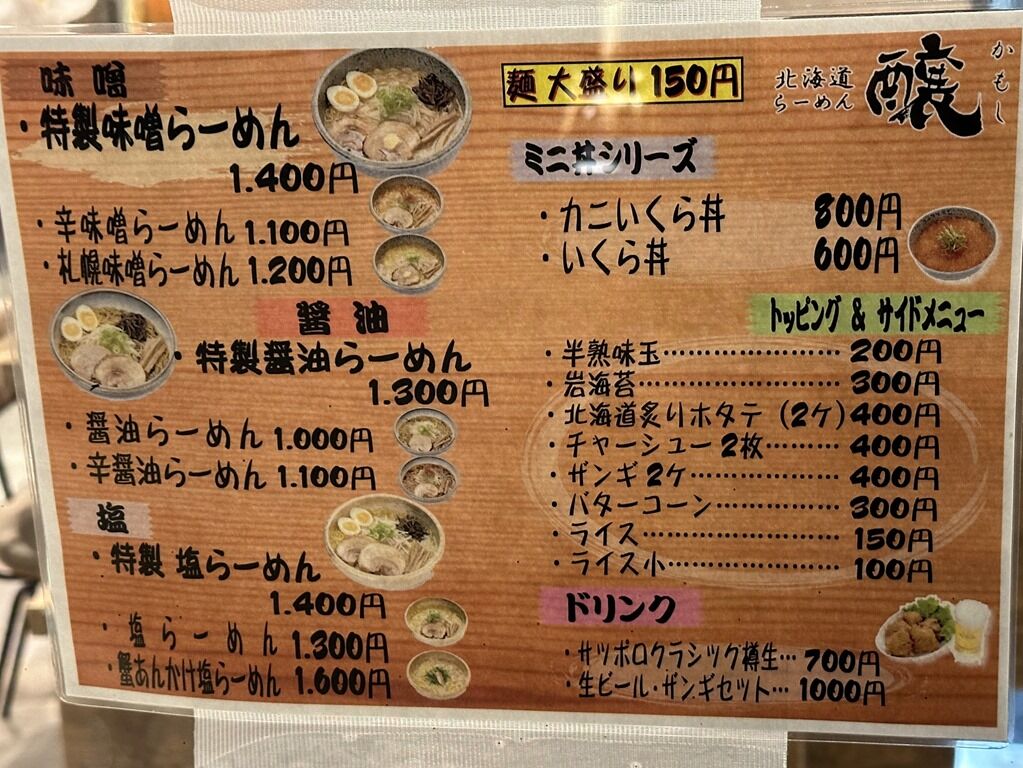 味噌
・特製味噌らーめん
1.400円
・辛味噌らーめん 1.100円
・札幌味噌らーめん 1.200円
醤油
・特製醤油らーめん
1.300円
・醤油らーめん 1.000円
・辛醤油らーめん 1.100円
塩
・特製 塩らーめん
1.400円
・塩らーめん 1.300円
・蟹あんかけ塩らーめん 1.600円
麺 大盛り 150円
北海道
らーめん
醸
かもし
ミニ丼シリーズ
・カニいくら丼 800円
・いくら丼 600円
トッピング & サイドメニュー
・半熟味玉………………… 200円
・岩海苔………………… 300円
・北海道炙りホタテ (2ケ) 400円
・チャーシュー 2枚……… 400円
・ザンギ 2ケ……………… 400円
・バターコーン…………… 300円
・ライス………………… 150円
・ライス小………………… 100円
ドリンク
・サッポロクラシック樽生… 700円
・生ビール・ザンギセット… 1000円